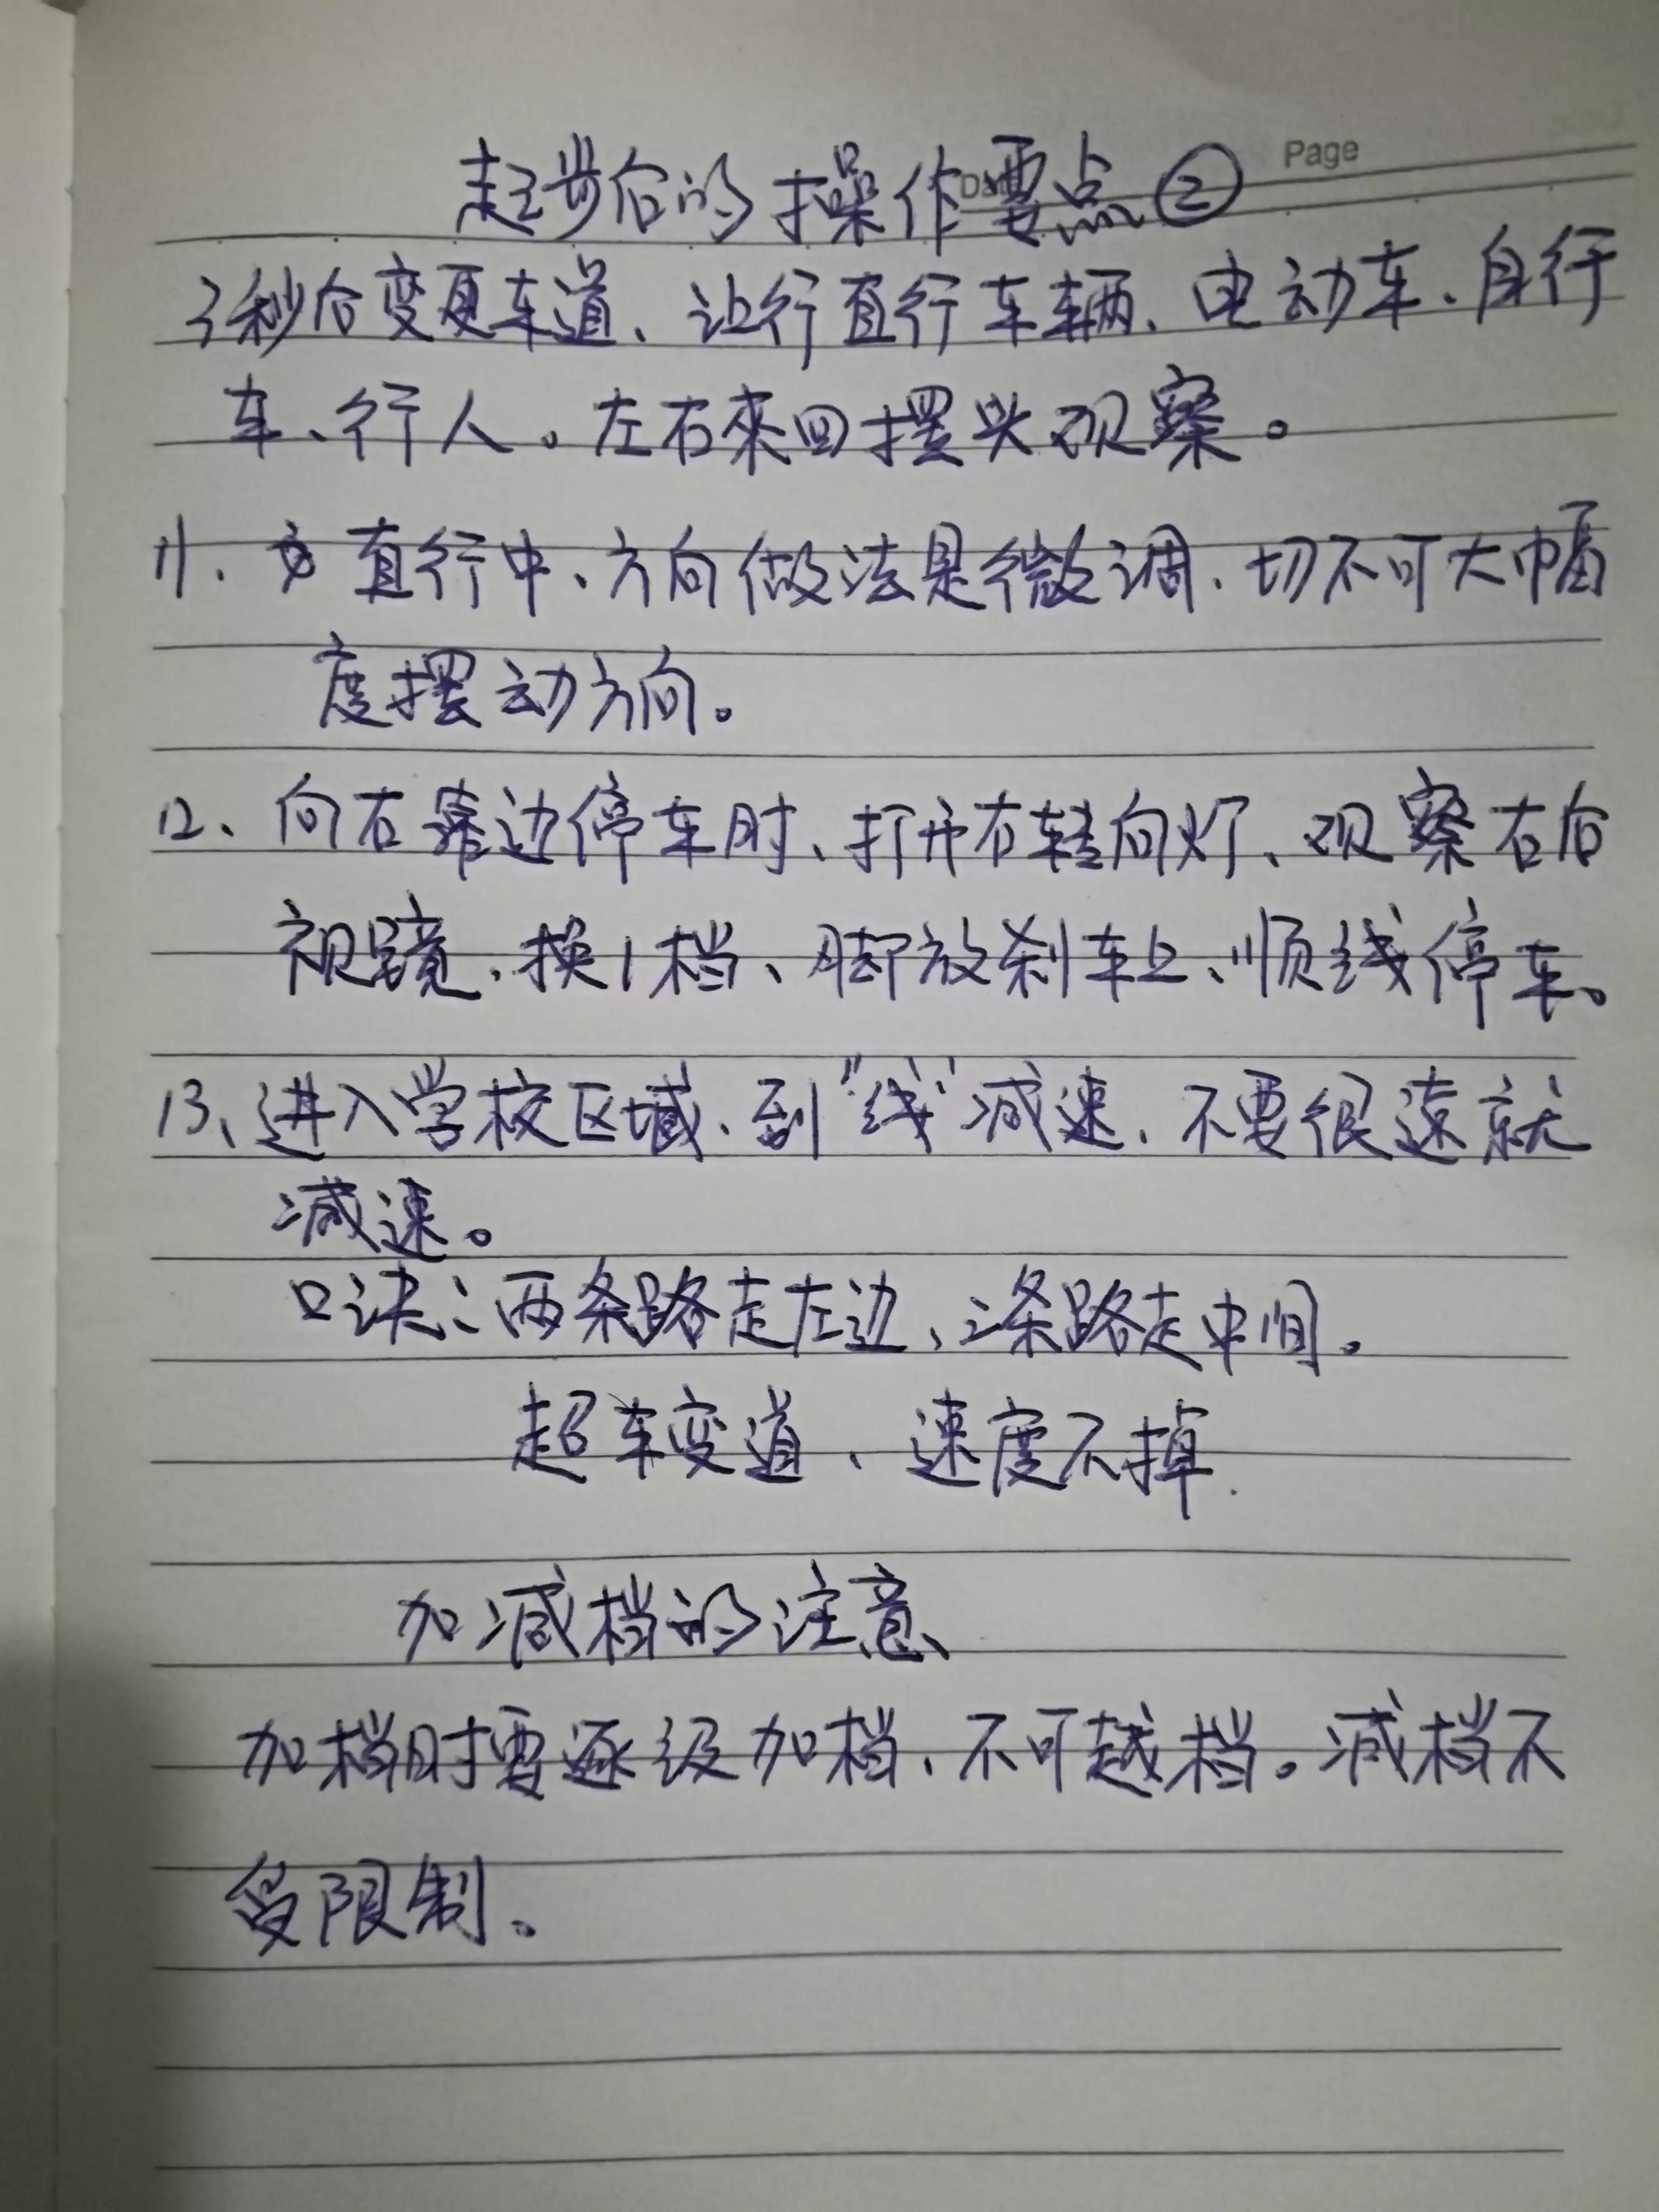 Page
起步后的操作要点②
3秒后变更车道、让行直行车辆、电动车、自行
车、行人。左右来回摆头观察。
11、直行中、方向做法是微调、切不可大幅
度摆动方向。
12、向右靠边停车时、打开右转向灯、观察右后
视镜、换1档、脚放刹车上、顺线停车。
13、进入学校区域、到"线"减速、不要很远就
减速。
口诀：两条路走左边、三条路走中间。
超车变道、速度不掉.
加减档的注意、
加档时要逐级加档、不可越档。减档不
受限制。